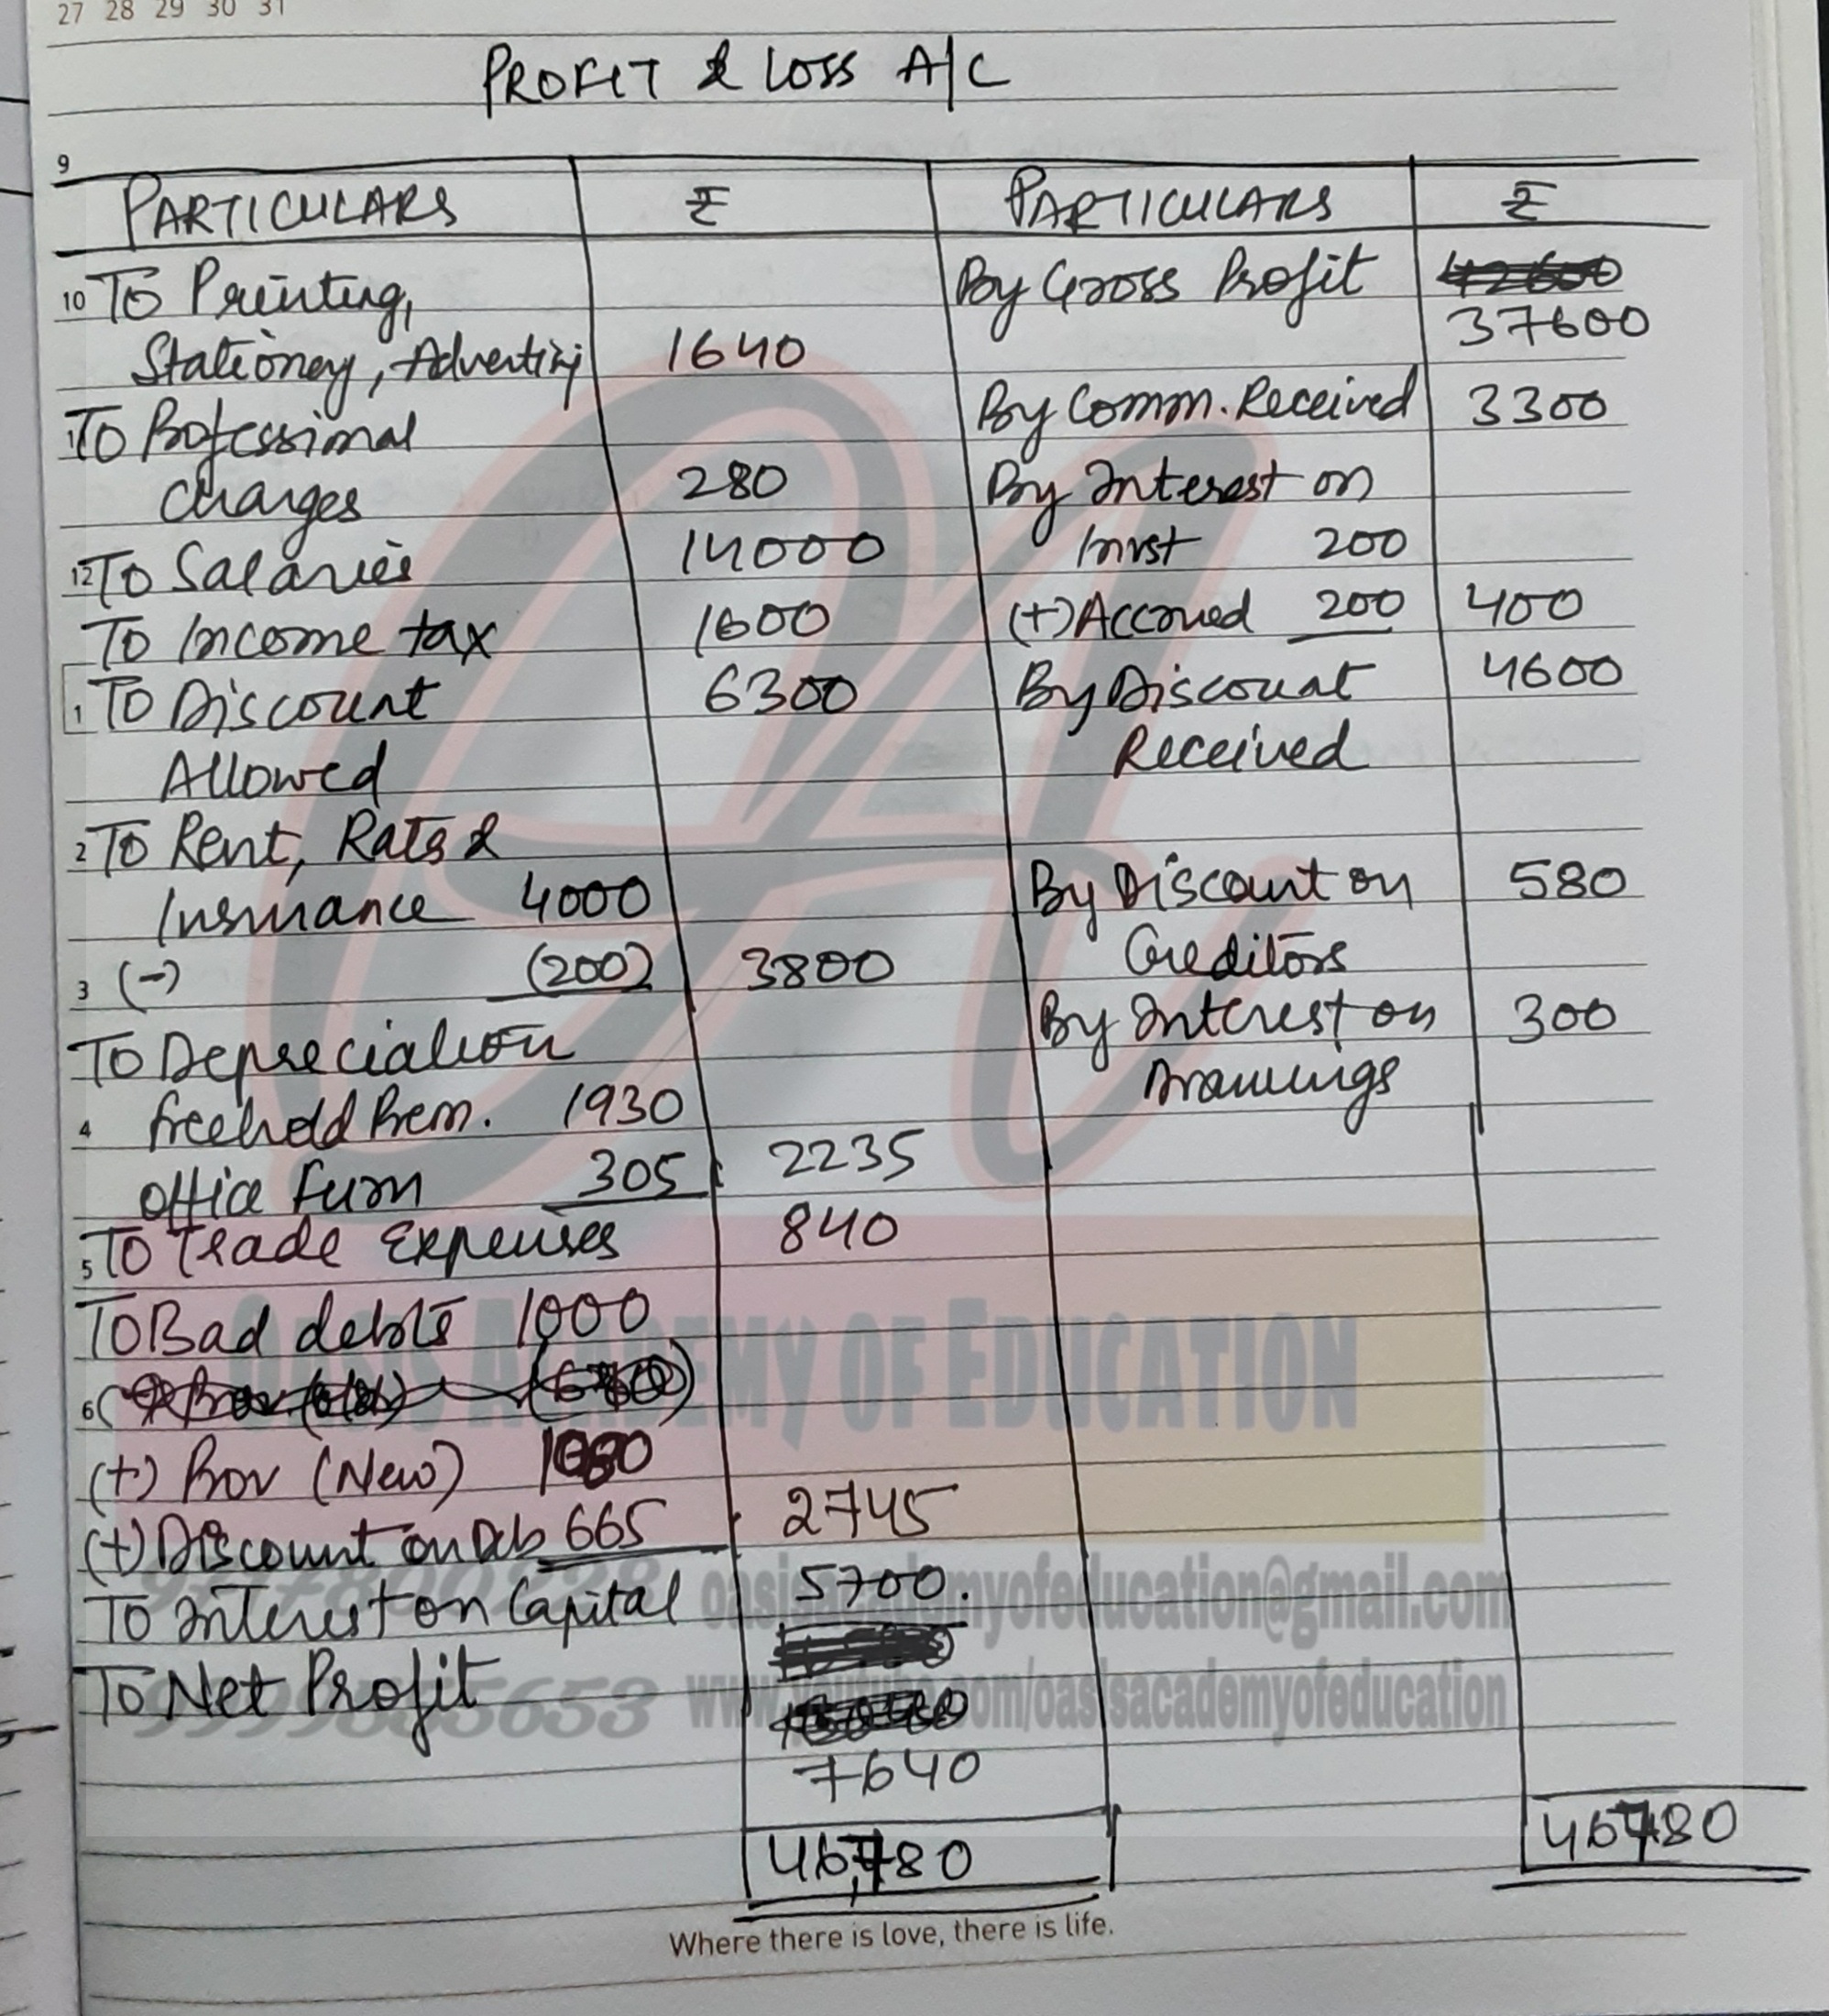 27 28 29 30 31
PROFIT & LOSS A/C
9
PARTICULARS ₹ PARTICULARS ₹
10 To Printing, By Gross Profit
Stationery, Advertisi 1640 37600
To Professional By Comm. Received 3300
charges 280 By Interest on
12 To Salaries 14000 Invst 200
To Income tax 1600 (+) Accrued 200 400
1 To Discount 6300 By Discount 4600
Allowed Received
2 To Rent, Rates &
Insurance 4000 By Discount on 580
3 (-) (200) 3800 Creditors
To Depreciation By Interest on 300
4 freehold Prem. 1930 Drawings
office Furn 305 2235
5 To Trade Expenses 840
To Bad debts 1000
6
(+) Prov (New) 1080
(+) Discount on Deb 665 2745
To Interest on Capital 5700.
To Net Profit
7640
46,780 46780
OASIS ACADEMY OF EDUCATION
oasisacademyofeducation@gmail.com
www.youtube.com/oasisacademyofeducation
Where there is love, there is life.